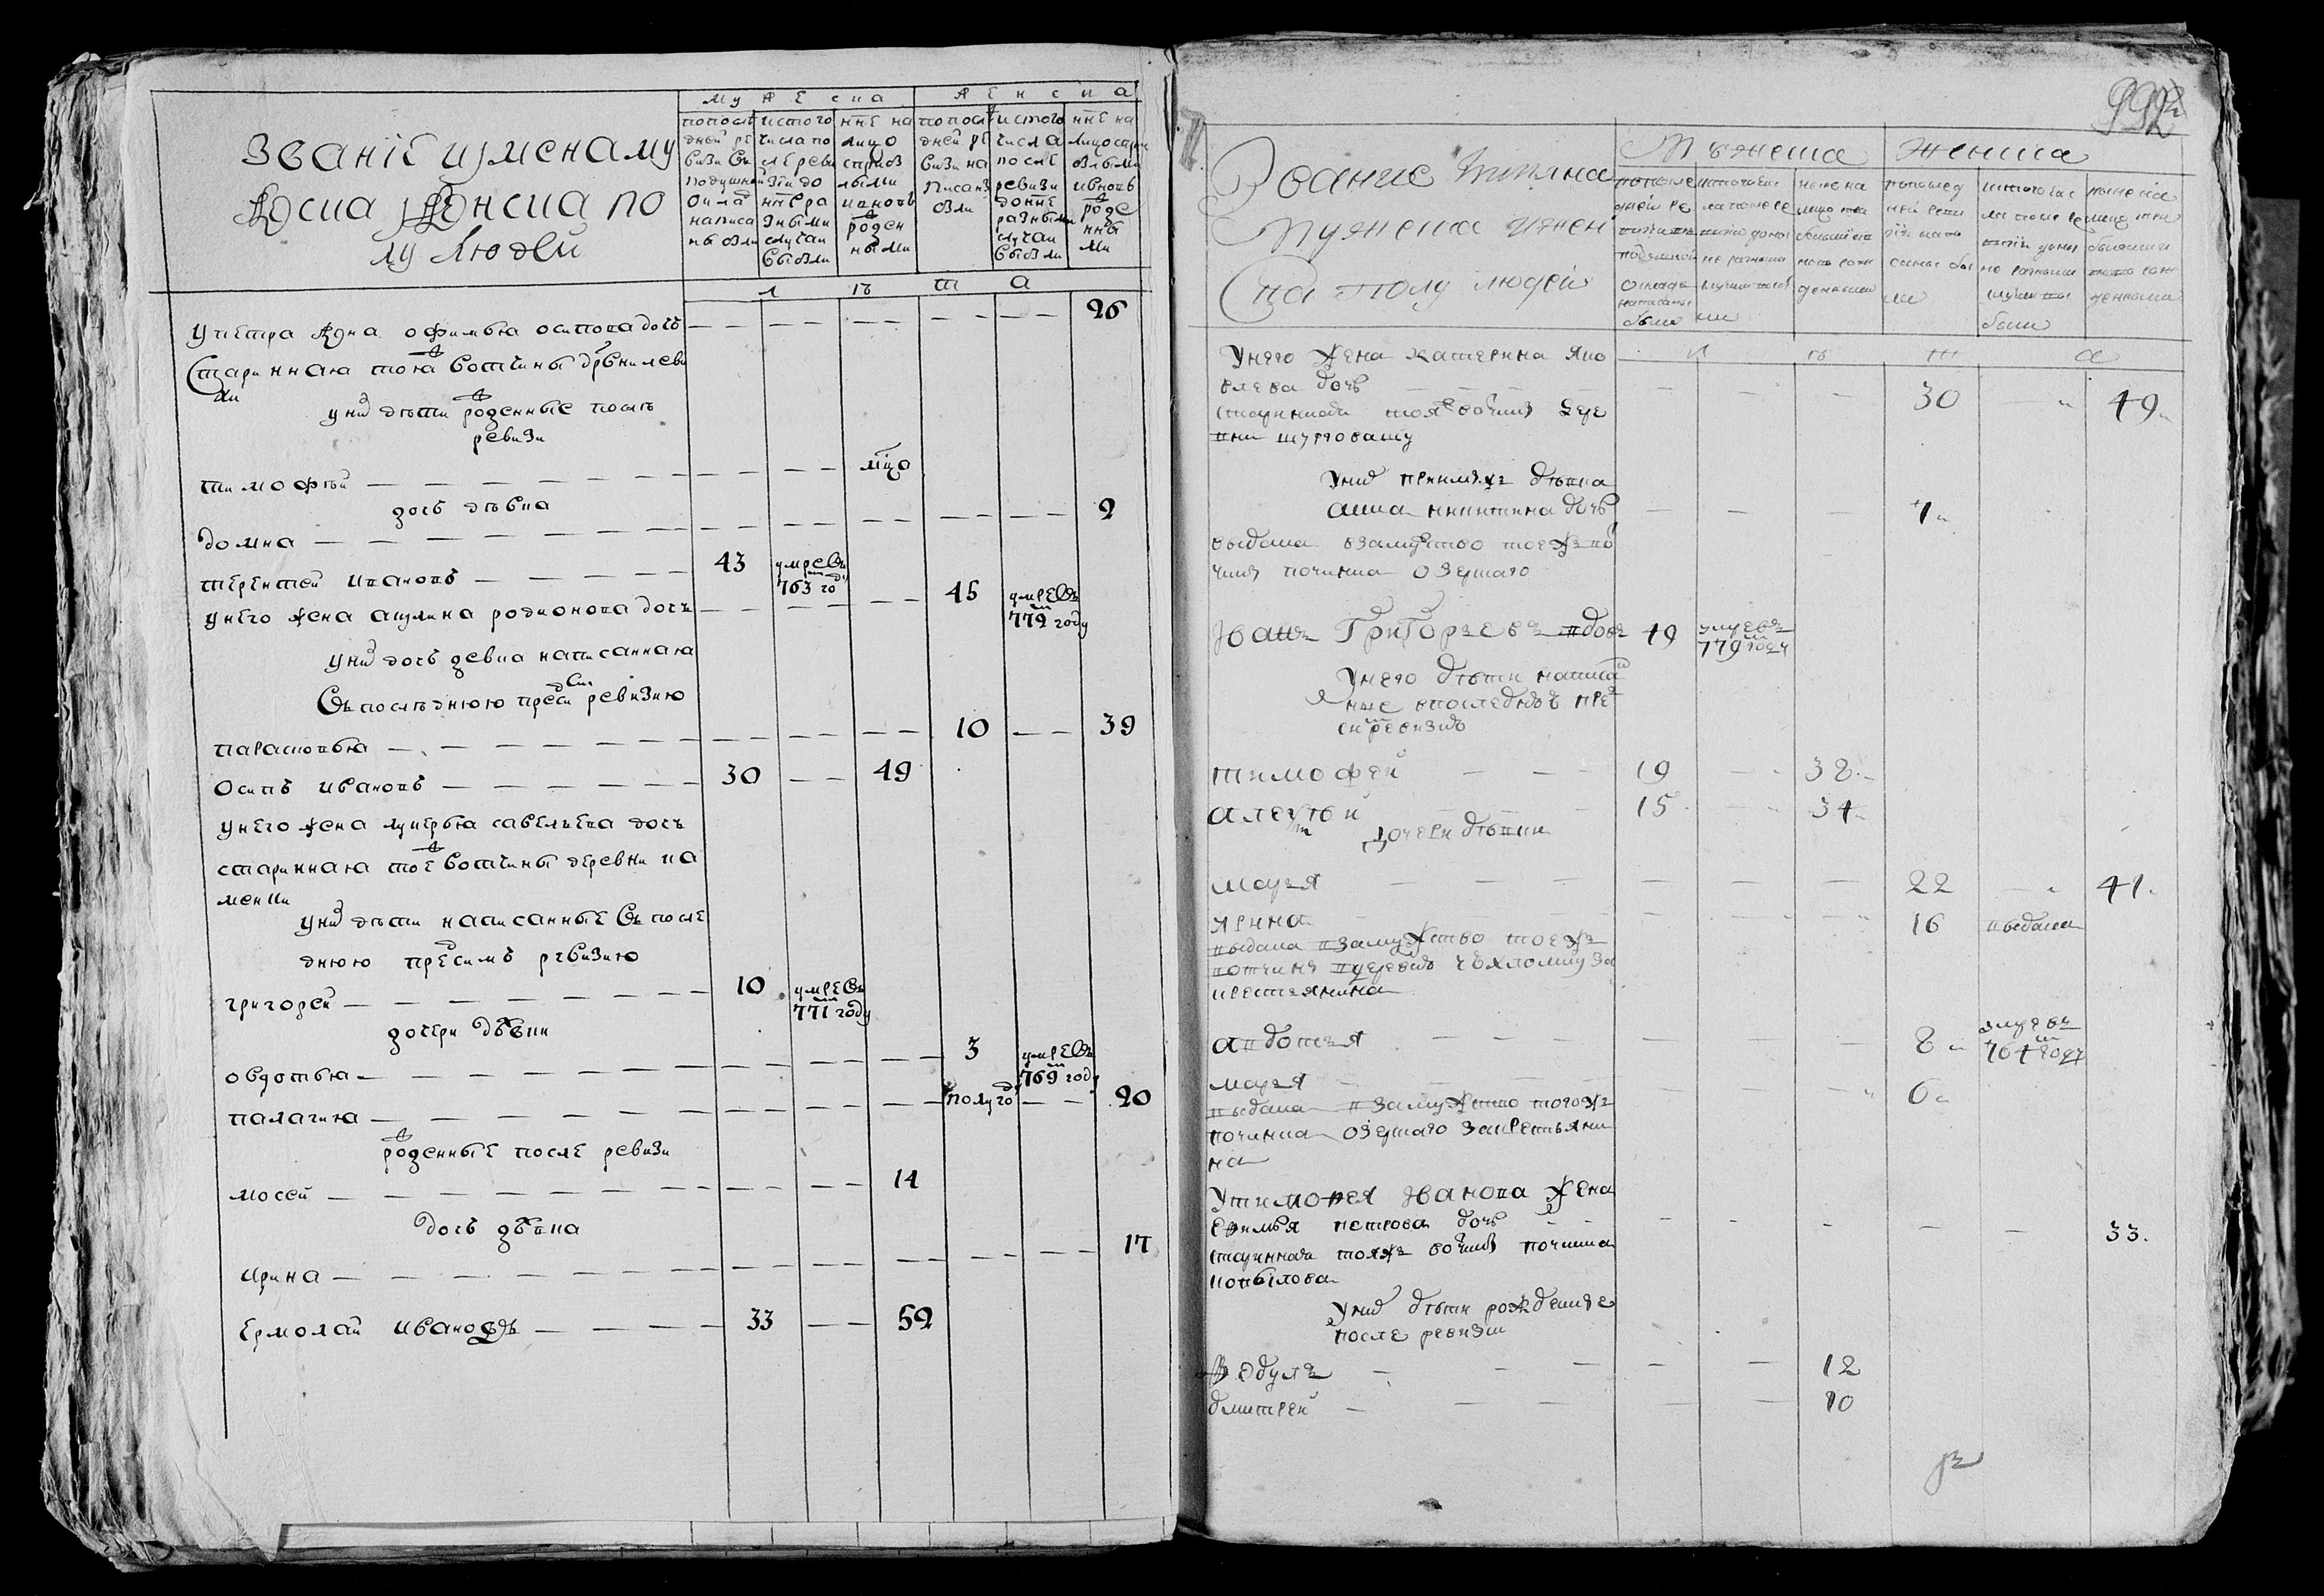 званїе иименаму
жеска иженска по
лу людей
мужеска
женска
попосле
дней ре
визи въ
подушной
оклад
написа
ны были
истого
числа по
сле реви
зїи до
нне ра
зными
случаи
выбыли
нне на
лицо
сприб
лыми
ивновь
рожден
ными
попосле
дней ре
визи на
писан
были
истого
числа
после
ревизи
до нне
разными
случаи
выбыли
нне на
лицо спри
былыми
ивновь
рожде
нны
ми
л ѣ т а
упетра жена офимья осипова дочь — — — — — — 26
стариннаю тоя ж вотчины дрвни леви
ки
уних дѣти рожденные послѣ
ревизи
тимофѣй — — лицо
дочь дѣвка
домна — — 2
терентей ивановъ — 43 умре въ 763 го
унего жена акулина родионова дочь — 45 умре въ 772 году
уних дочь девка написанная
въ последнюю пред сим ревизию
парасковья — 10 — 39
осипъ ивановъ — 30 — 49
унего жена лукерья савельева дочь
стариннаю тое ж вотчины деревни ка
менки
уних дѣти написанные въ после
днюю пред симъ ревизию
григорей — 10 умре въ 771 году
дочери дѣвки
овдотья — 3 умре въ 769 году
палагию — полуго — 20
рожденные после ревизи
мосей — 14
дочь дѣвка
ирина — 17
ермолай ивановъ — 33 — 52
992
Звание имяна
мужеска ижен
ска полу людей
Мужеска
женска
попосле
дней ре
визи въ
подушной
окладъ
написаны
были
истого чис
ла после ре
визїи доны
не разными
случаи выбы
ли
ныне на
лицо при
былыми
вновь рож
денными
попослед
ней реви
зїи напи
саны бы
ли
истого чис
ла после ре
визїи доны
не разными
случаи вы
были
ныне на
лицо при
былыми
вновь рож
денными
л ѣ т а
Унего жена катерина яко
влева дочь — 30 — 49
стариннаи тояж вотчины дере
вни шуртовашу
Уних приимыж дѣвка
анна никитина дочь — 4
выдана взамужство тоеж во
чины починка озернаго
Иван Григорьев вдов 49 умре въ 779 году
Унего дѣти написа
нные впоследнюю пре
сим ревизию
тимофей — 19 — 38
алексѣй — 15 — 34
дочери дѣвки
марья — 22 — 41
ярина — 16 выдана
выдана взамужство тоеж
вотчины вдеревню чѣхломину за
крестьянина
авдотья — 8 умре въ 764 году
марья — 6
выдана взамужство тогож
починка озернаго закрестьяни
на
Утимофея иванова жена
ефимья петрова дочь — 33
стариннаи тояж вочины починка
копылова
Уних дѣти рожденные
после ревизии
федулъ — 12
дмитрей — 10